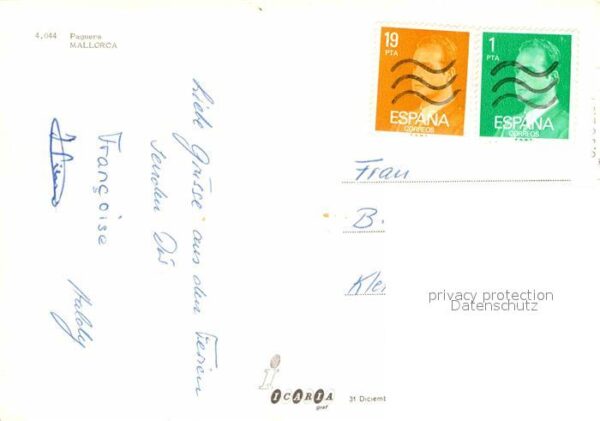 4,044 Paguera
MALLORCA
19
PTA
ESPAÑA
CORREOS
1
PTA
ESPAÑA
CORREOS
Liebe Grüsse aus den Ferien
senden Dir
Françoise
Frau
B.
Kle
privacy protection
Datenschutz
ICARIA
graf
31 Diciemb